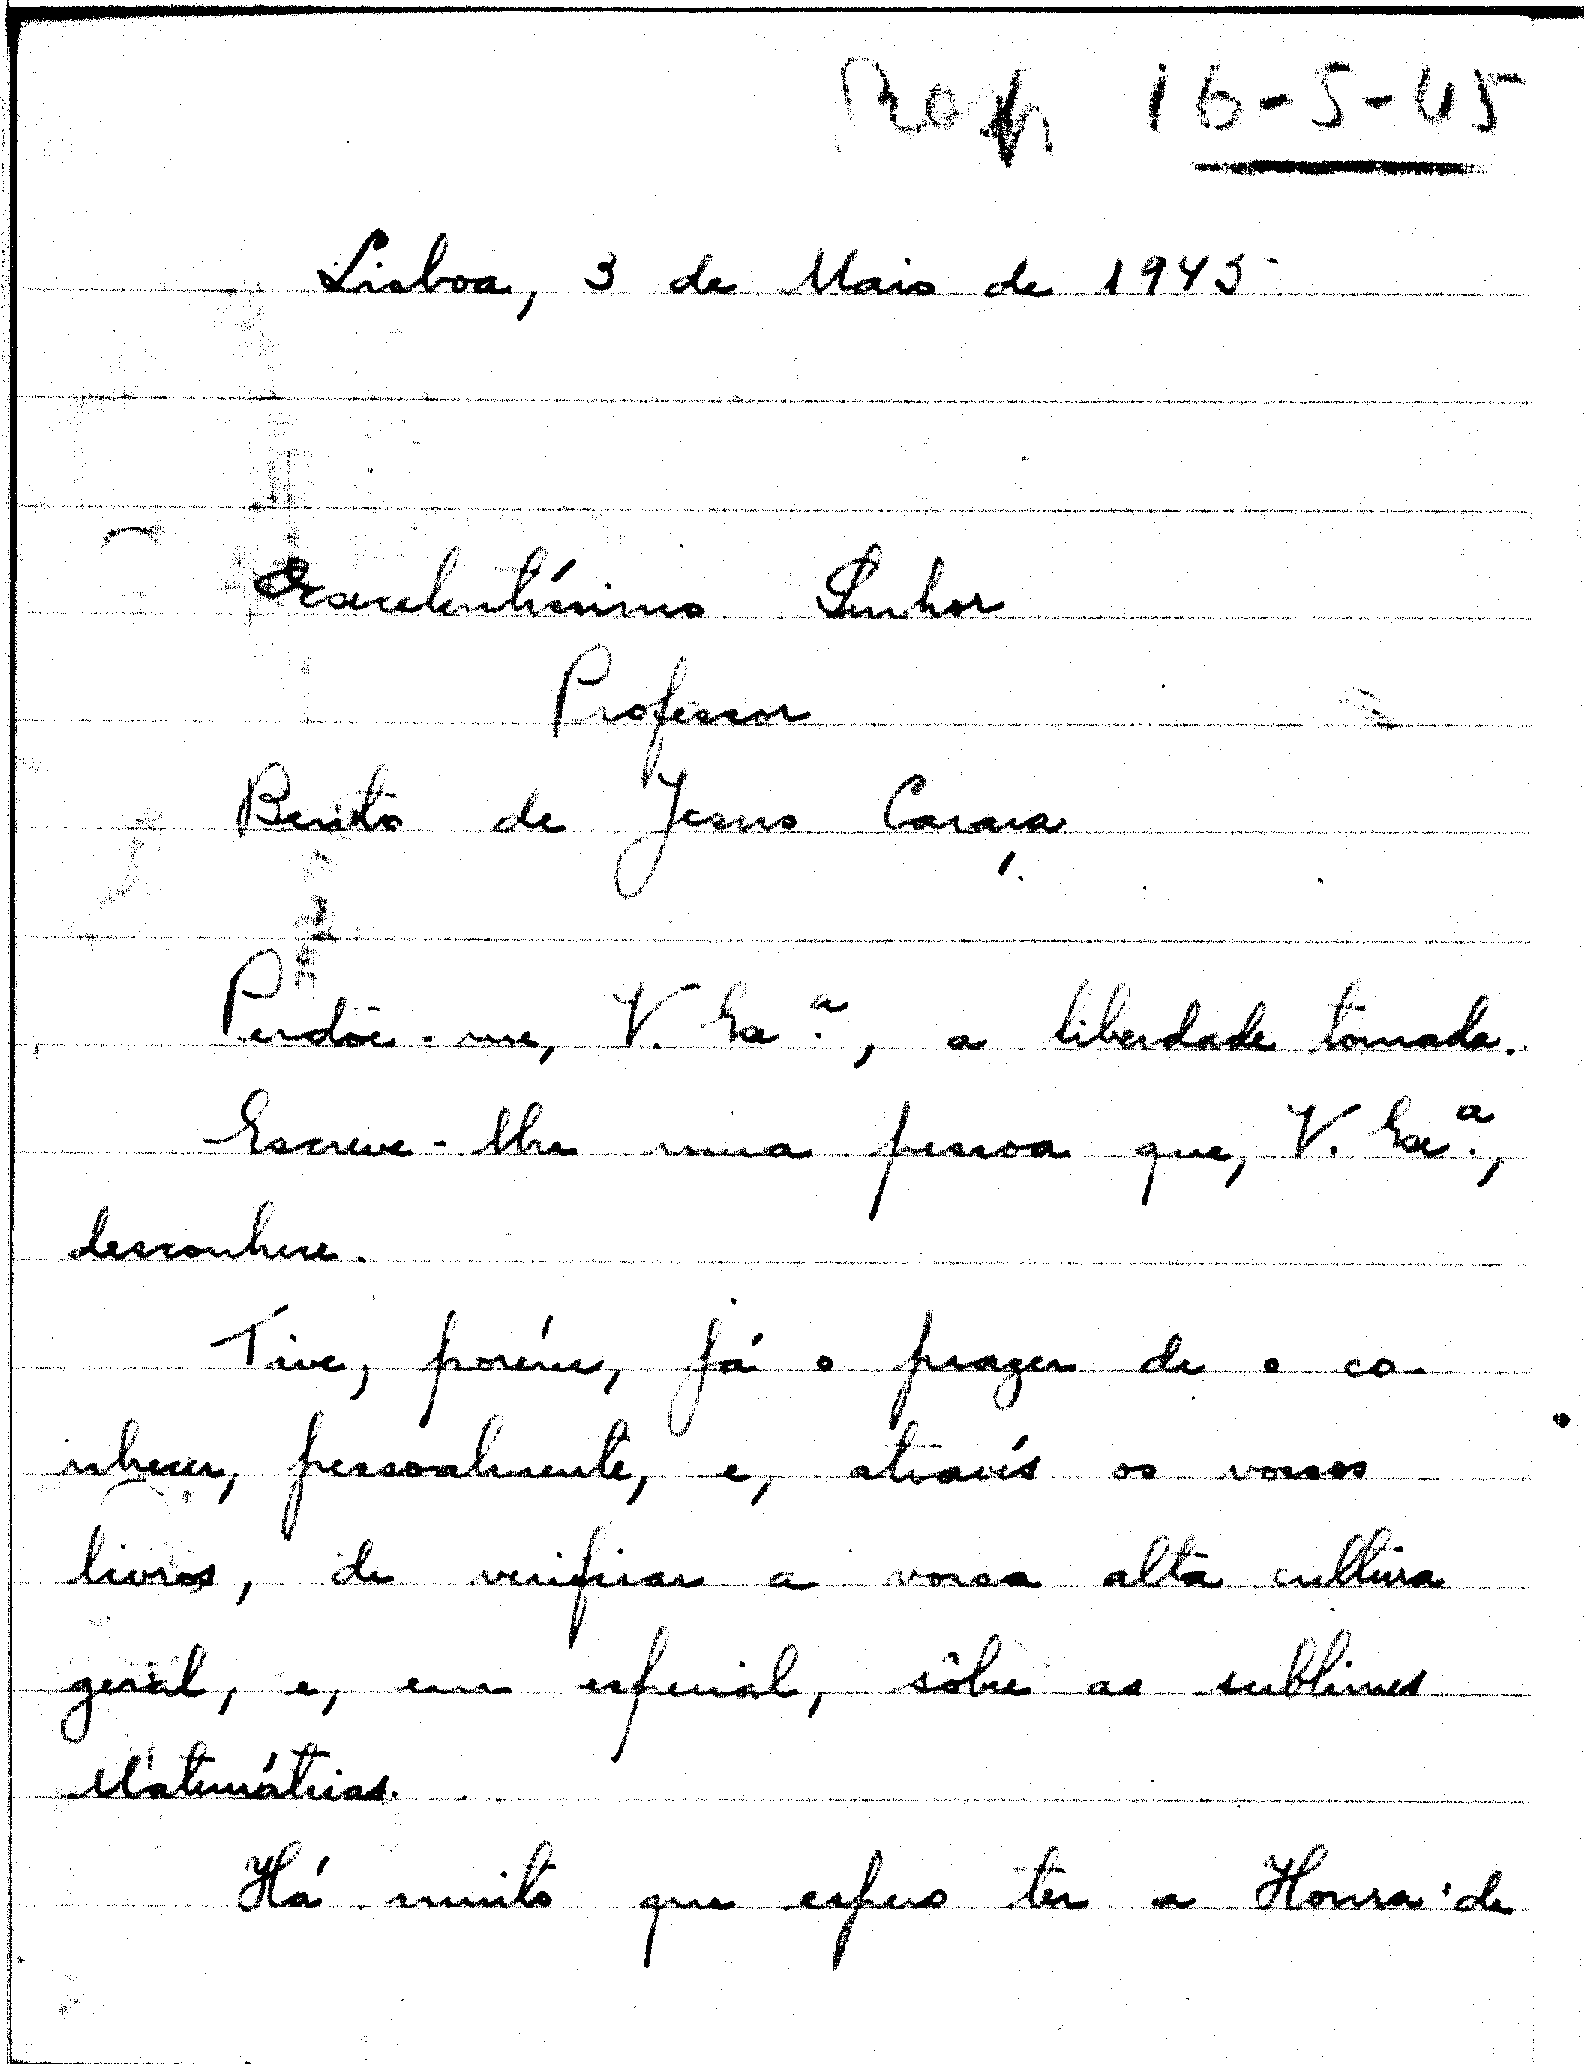 16-5-45
Lisboa, 3 de Maio de 1945
Excelentíssimo Senhor
Professor
Bento de Jesus Caraça
Perdõe-me, V. Exª, a liberdade tomada.
Escreve-lhe uma pessoa que, V. Exª,
desconhece.
Tive, porém, já o prazer de o co-
nhecer, pessoalmente, e, através os vossos
livros, de verificar a vossa alta cultura
geral, e, em especial, sôbre as sublimes
Matemáticas.
Há muito que espero ter a Honra de